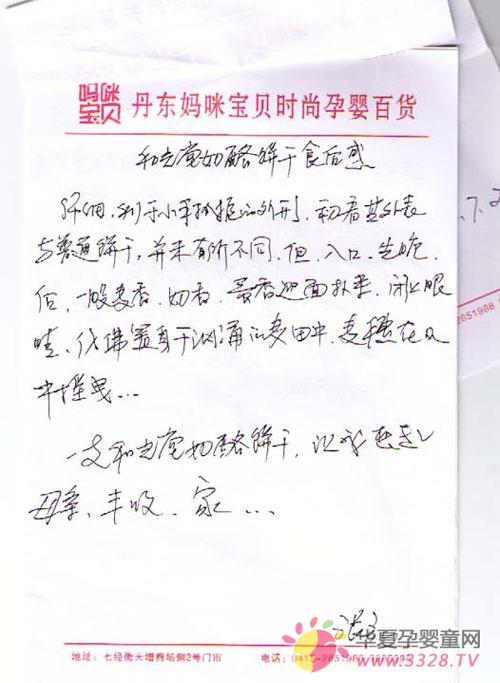 妈咪宝贝
丹东妈咪宝贝时尚孕婴百货
和光堂奶酪饼干食后感
纤细、利于小手抓握的外形,初看其外表
与普通饼干,并未有所不同,但,入口,
后,一股麦香、奶香、蛋香迎面扑来,闭上眼
睛,仿佛置身于汹涌的麦田中,麦穗在风
中摇曳...
一支和光堂奶酪饼干,让我想起
母亲、丰收、家...
7.2
2851988
地址:七经街大增商场侧2号门市
电话:0415-2851988
华夏孕婴童网
www.3328.TV